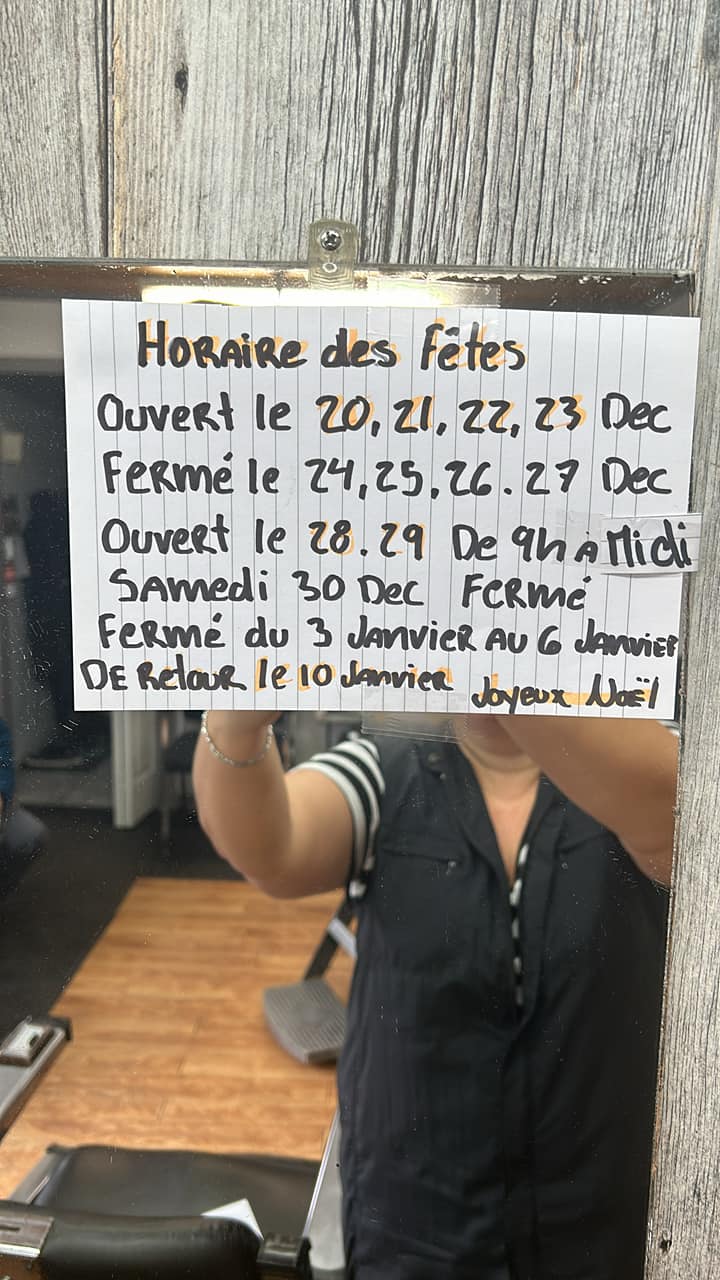 Horaire des Fêtes
Ouvert le 20, 21, 22, 23 Dec
Fermé le 24, 25, 26. 27 Dec
Ouvert le 28. 29 De 9h à Midi
Samedi 30 Dec Fermé
Fermé du 3 Janvier au 6 Janvier
De Retour le 10 Janvier Joyeux Noël